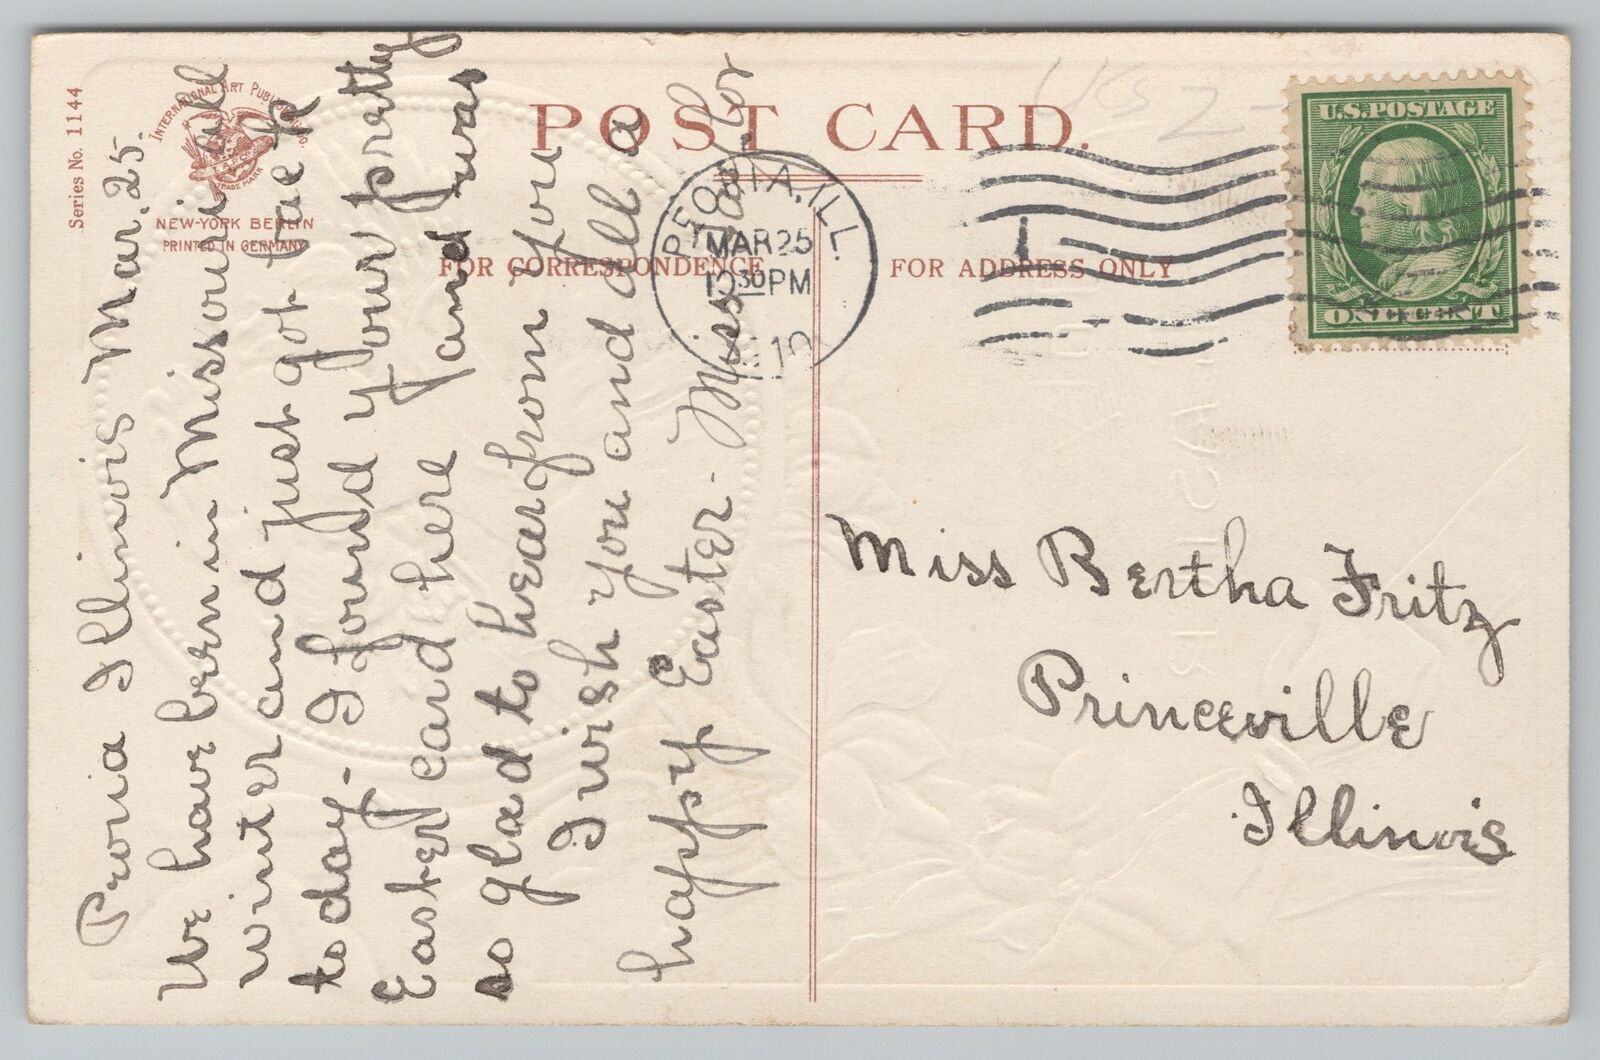 Series No. 1144
INTERNATIONAL ART PUBL. CO.
TRADE MARK
NEW-YORK BERLIN
PRINTED IN GERMANY
POST CARD.
FOR CORRESPONDENCE
FOR ADDRESS ONLY
PEORIA, ILL.
MAR 25
10 30 PM
1910
1
U.S. POSTAGE
ONE CENT
Peoria Illinois Mar. 25.
We have been in Missouri all
winter and just got back
to day. I found your pretty
Easter card here and was
so glad to hear from you
I wish you and all a
happy Easter. Miss
Miss Bertha Fritz
Princeville
Illinois